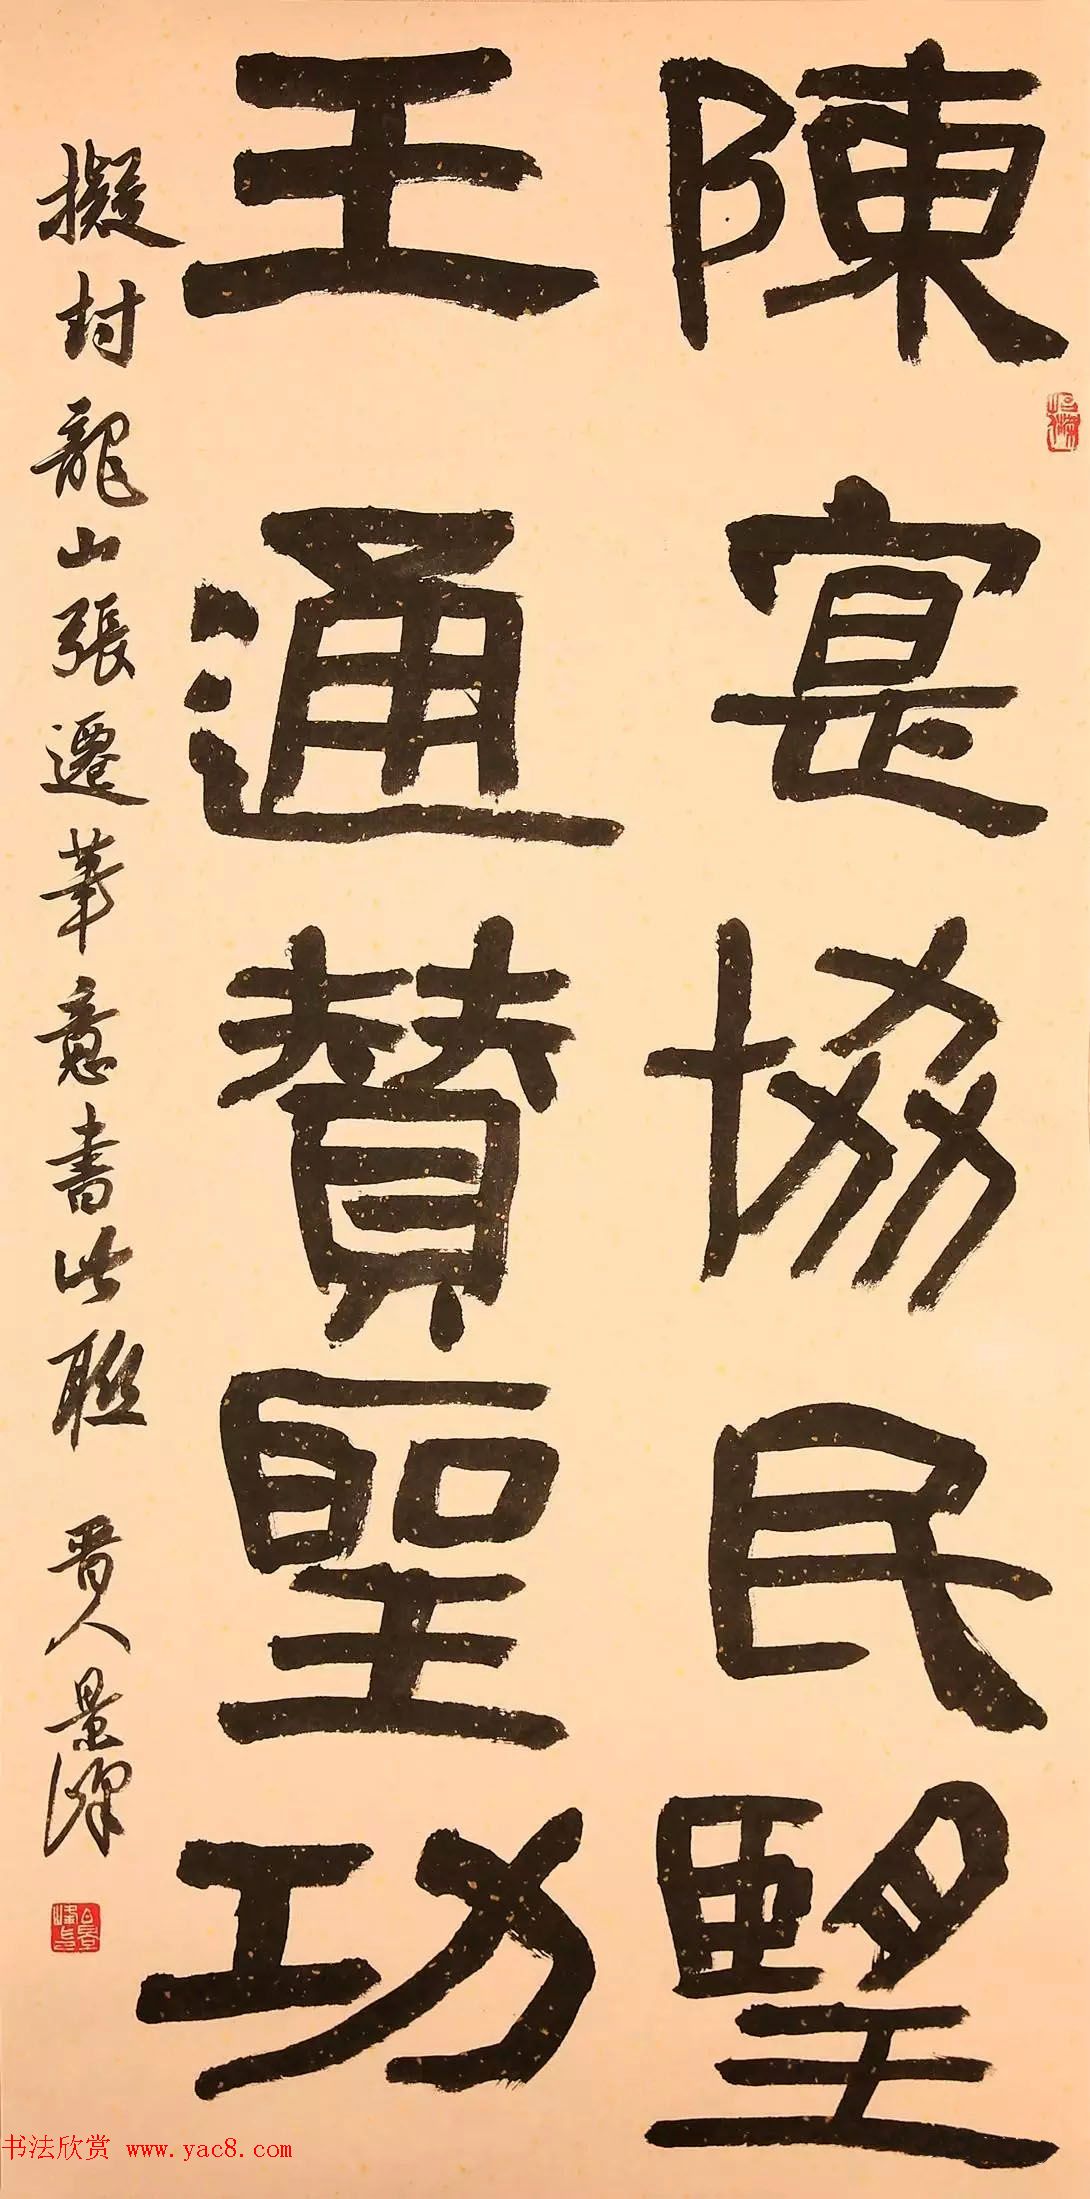 陳寔協民朢
王通賛聖功
擬封龍山張遷筆意書此聯 晋人景峰
书法欣赏 www.yac8.com